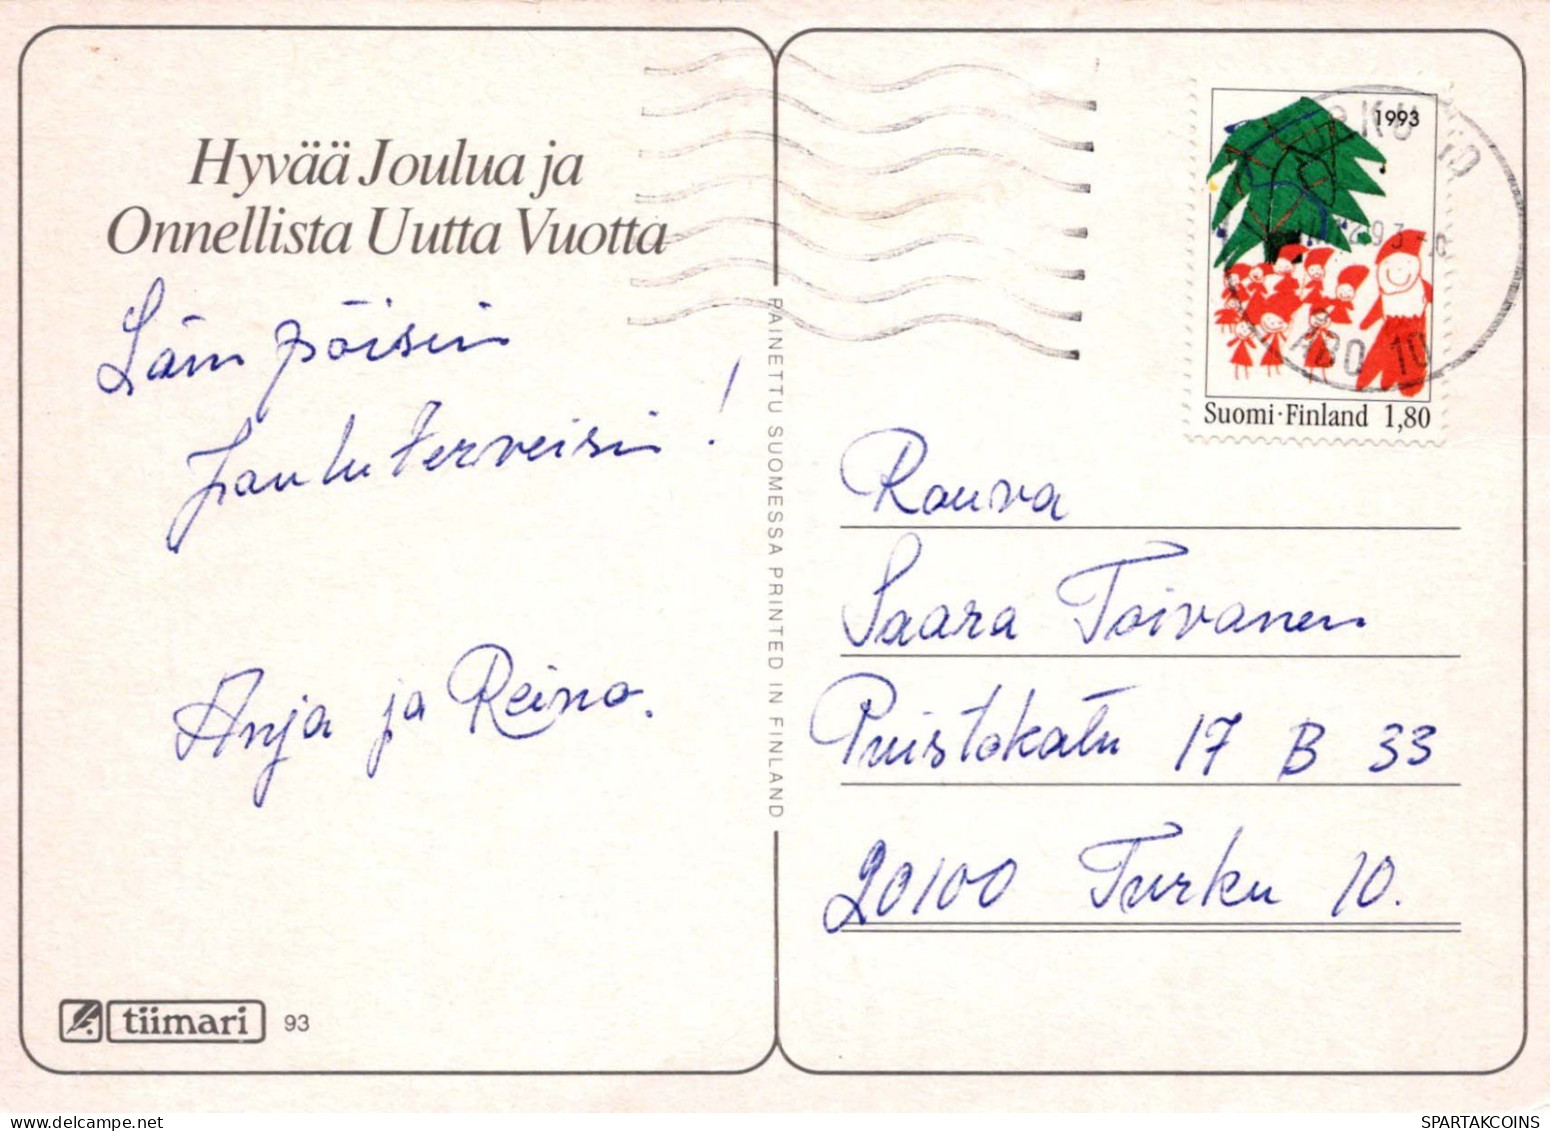 Hyvää Joulua ja
Onnellista Uutta Vuotta
Läm pöisin
Jouluterveisin !
Anja ja Reino.
tiimari 93
PAINETTU SUOMESSA PRINTED IN FINLAND
1993
ÅBO 10
Suomi·Finland 1,80
Rouva
Saara Toivanen
Puistokatu 17 B 33
20100 Turku 10.
SPARTAKCOINS